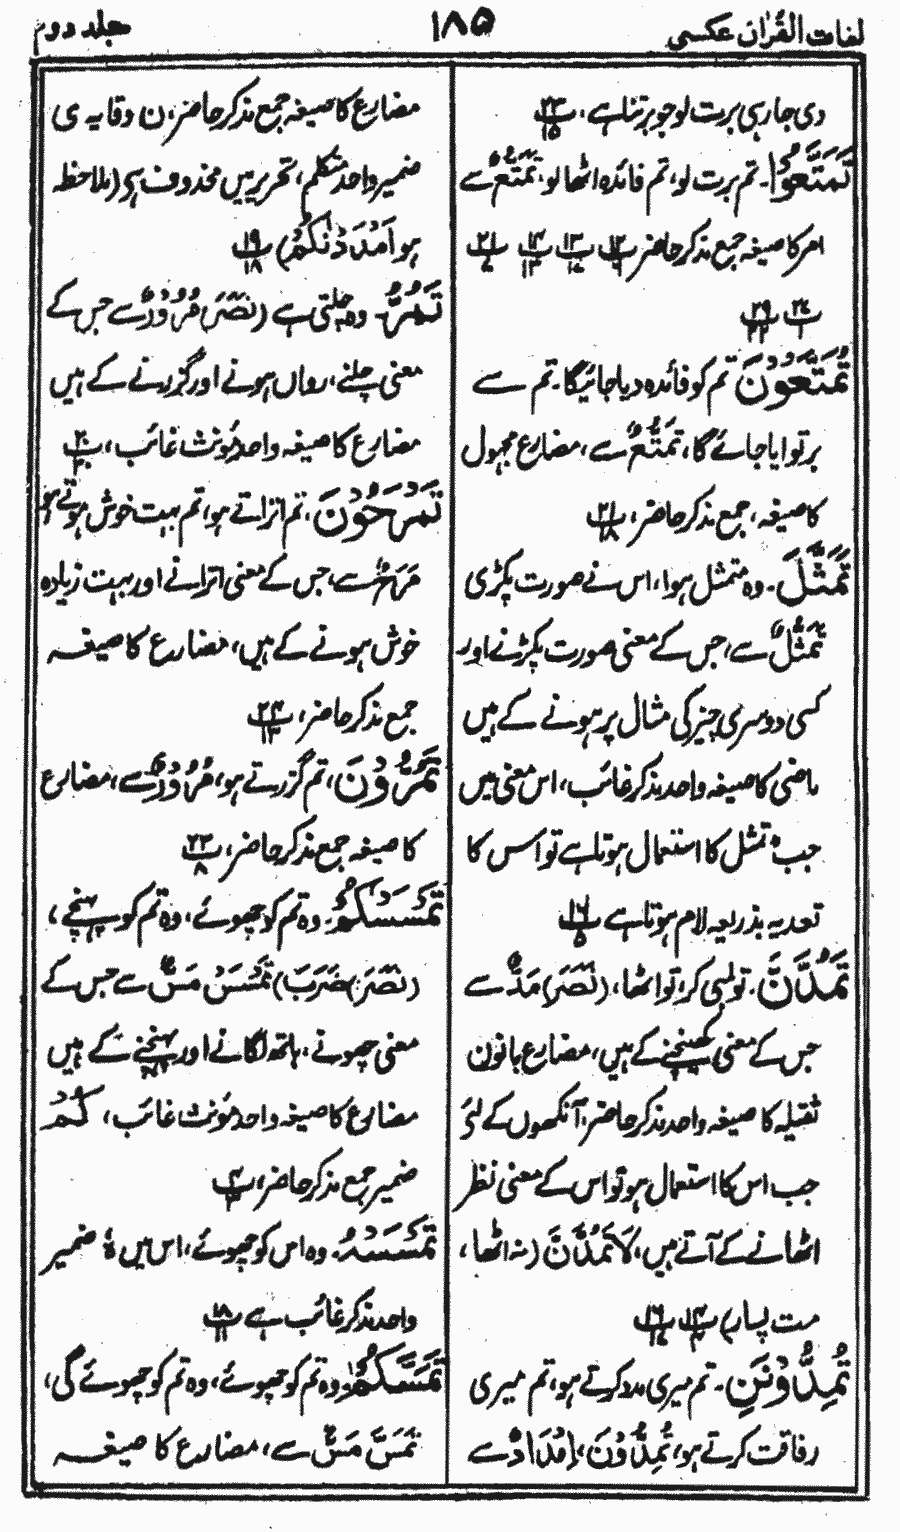 لغات القرآن عکسی
۱۸۵
جلد دوم
دی جا رہی برت لو جو برتنا ہے، پ ۲۳ ۱۵
تَمَتَّعُوْا۔ تم برت لو، تم فائدہ اٹھا لو، تَمَتُّعٌ سے
امر کا صیغہ جمع مذکر حاضر
تُمَتَّعُوْنَ تم کو فائدہ دیا جائیگا۔ تم سے
برتوایا جائے گا، تَمَتُّعٌ سے، مضارع مجہول
کا صیغہ، جمع مذکر حاضر، پ ۲۱ ۱۸
تَمَثَّلَ۔ وہ متمثل ہوا، اس نے صورت پکڑی
تَمَثُّلٌ سے، جس کے معنی صورت پکڑنے اور
کسی دوسری چیز کی مثال پر ہونے کے ہیں
ماضی کا صیغہ واحد مذکر غائب، اس معنی میں
جب تمثل کا استعمال ہوتا ہے تو اس کا
تعدیہ بذریعہ لام ہوتا ہے پ ۱۶ ۵
تَمُدَّنَّ۔ تو لمبی کر، تو اٹھا، (نَصَرَ) مَدٌّ سے
جس کے معنی کھینچنے کے ہیں، مضارع بانون
ثقیلہ کا صیغہ واحد مذکر حاضر، آنکھوں کے لئے
جب اس کا استعمال ہو تو اس کے معنی نظر
اٹھانے کے آتے ہیں، لَا تَمُدَّنَّ (نہ اٹھا،
مت پسار)
تُمِدُّوْنَنِ۔ تم میری مدد کرتے ہو، تم میری
رفاقت کرتے ہو، تُمِدُّوْنَ، اِمْدَادٌ سے
مضارع کا صیغہ جمع مذکر حاضر، ن وقایہ ی
ضمیر واحد متکلم، تحریر میں محذوف ہے (ملاحظہ
ہو اَمَدَّكُمْ) پ ۱۹ ۱۸
تَمُرُّ۔ وہ چلتی ہے (نَصَرَ) مُرُوْرٌ سے جس کے
معنی چلنے، رواں ہونے اور گزرنے کے ہیں
مضارع کا صیغہ واحد مؤنث غائب، پ ۲۰ ۳
تَمْرَحُوْنَ، تم اتراتے ہو، تم بہت خوش ہوتے ہو
مَرَحٌ سے، جس کے معنی اترانے اور بہت زیادہ
خوش ہونے کے ہیں، مضارع کا صیغہ
جمع مذکر حاضر، پ ۲۴ ۱۳
تَمُرُّوْنَ، تم گزرتے ہو، مُرُوْرٌ سے، مضارع
کا صیغہ جمع مذکر حاضر، پ ۲۳ ۸
تَمْسَسْكُمْ۔ وہ تم کو چھوئے، وہ تم کو پہنچے،
(نَصَرَ) (ضَرَبَ) تَمْسَسْ مَسٌّ سے جس کے
معنی چھونے، ہاتھ لگانے اور پہنچنے کے ہیں
مضارع کا صیغہ واحد مؤنث غائب، كُمْ
ضمیر جمع مذکر حاضر، پ ۴ ۳
تَمْسَسْهُ۔ وہ اس کو چھوئے، اس میں ہٗ ضمیر
واحد مذکر غائب ہے پ ۱۸ ۱۱
تَمَسَّكُمْ۔ وہ تم کو چھوئے، وہ تم کو چھوئے گی،
تَمَسَّ مَسٌّ سے، مضارع کا صیغہ